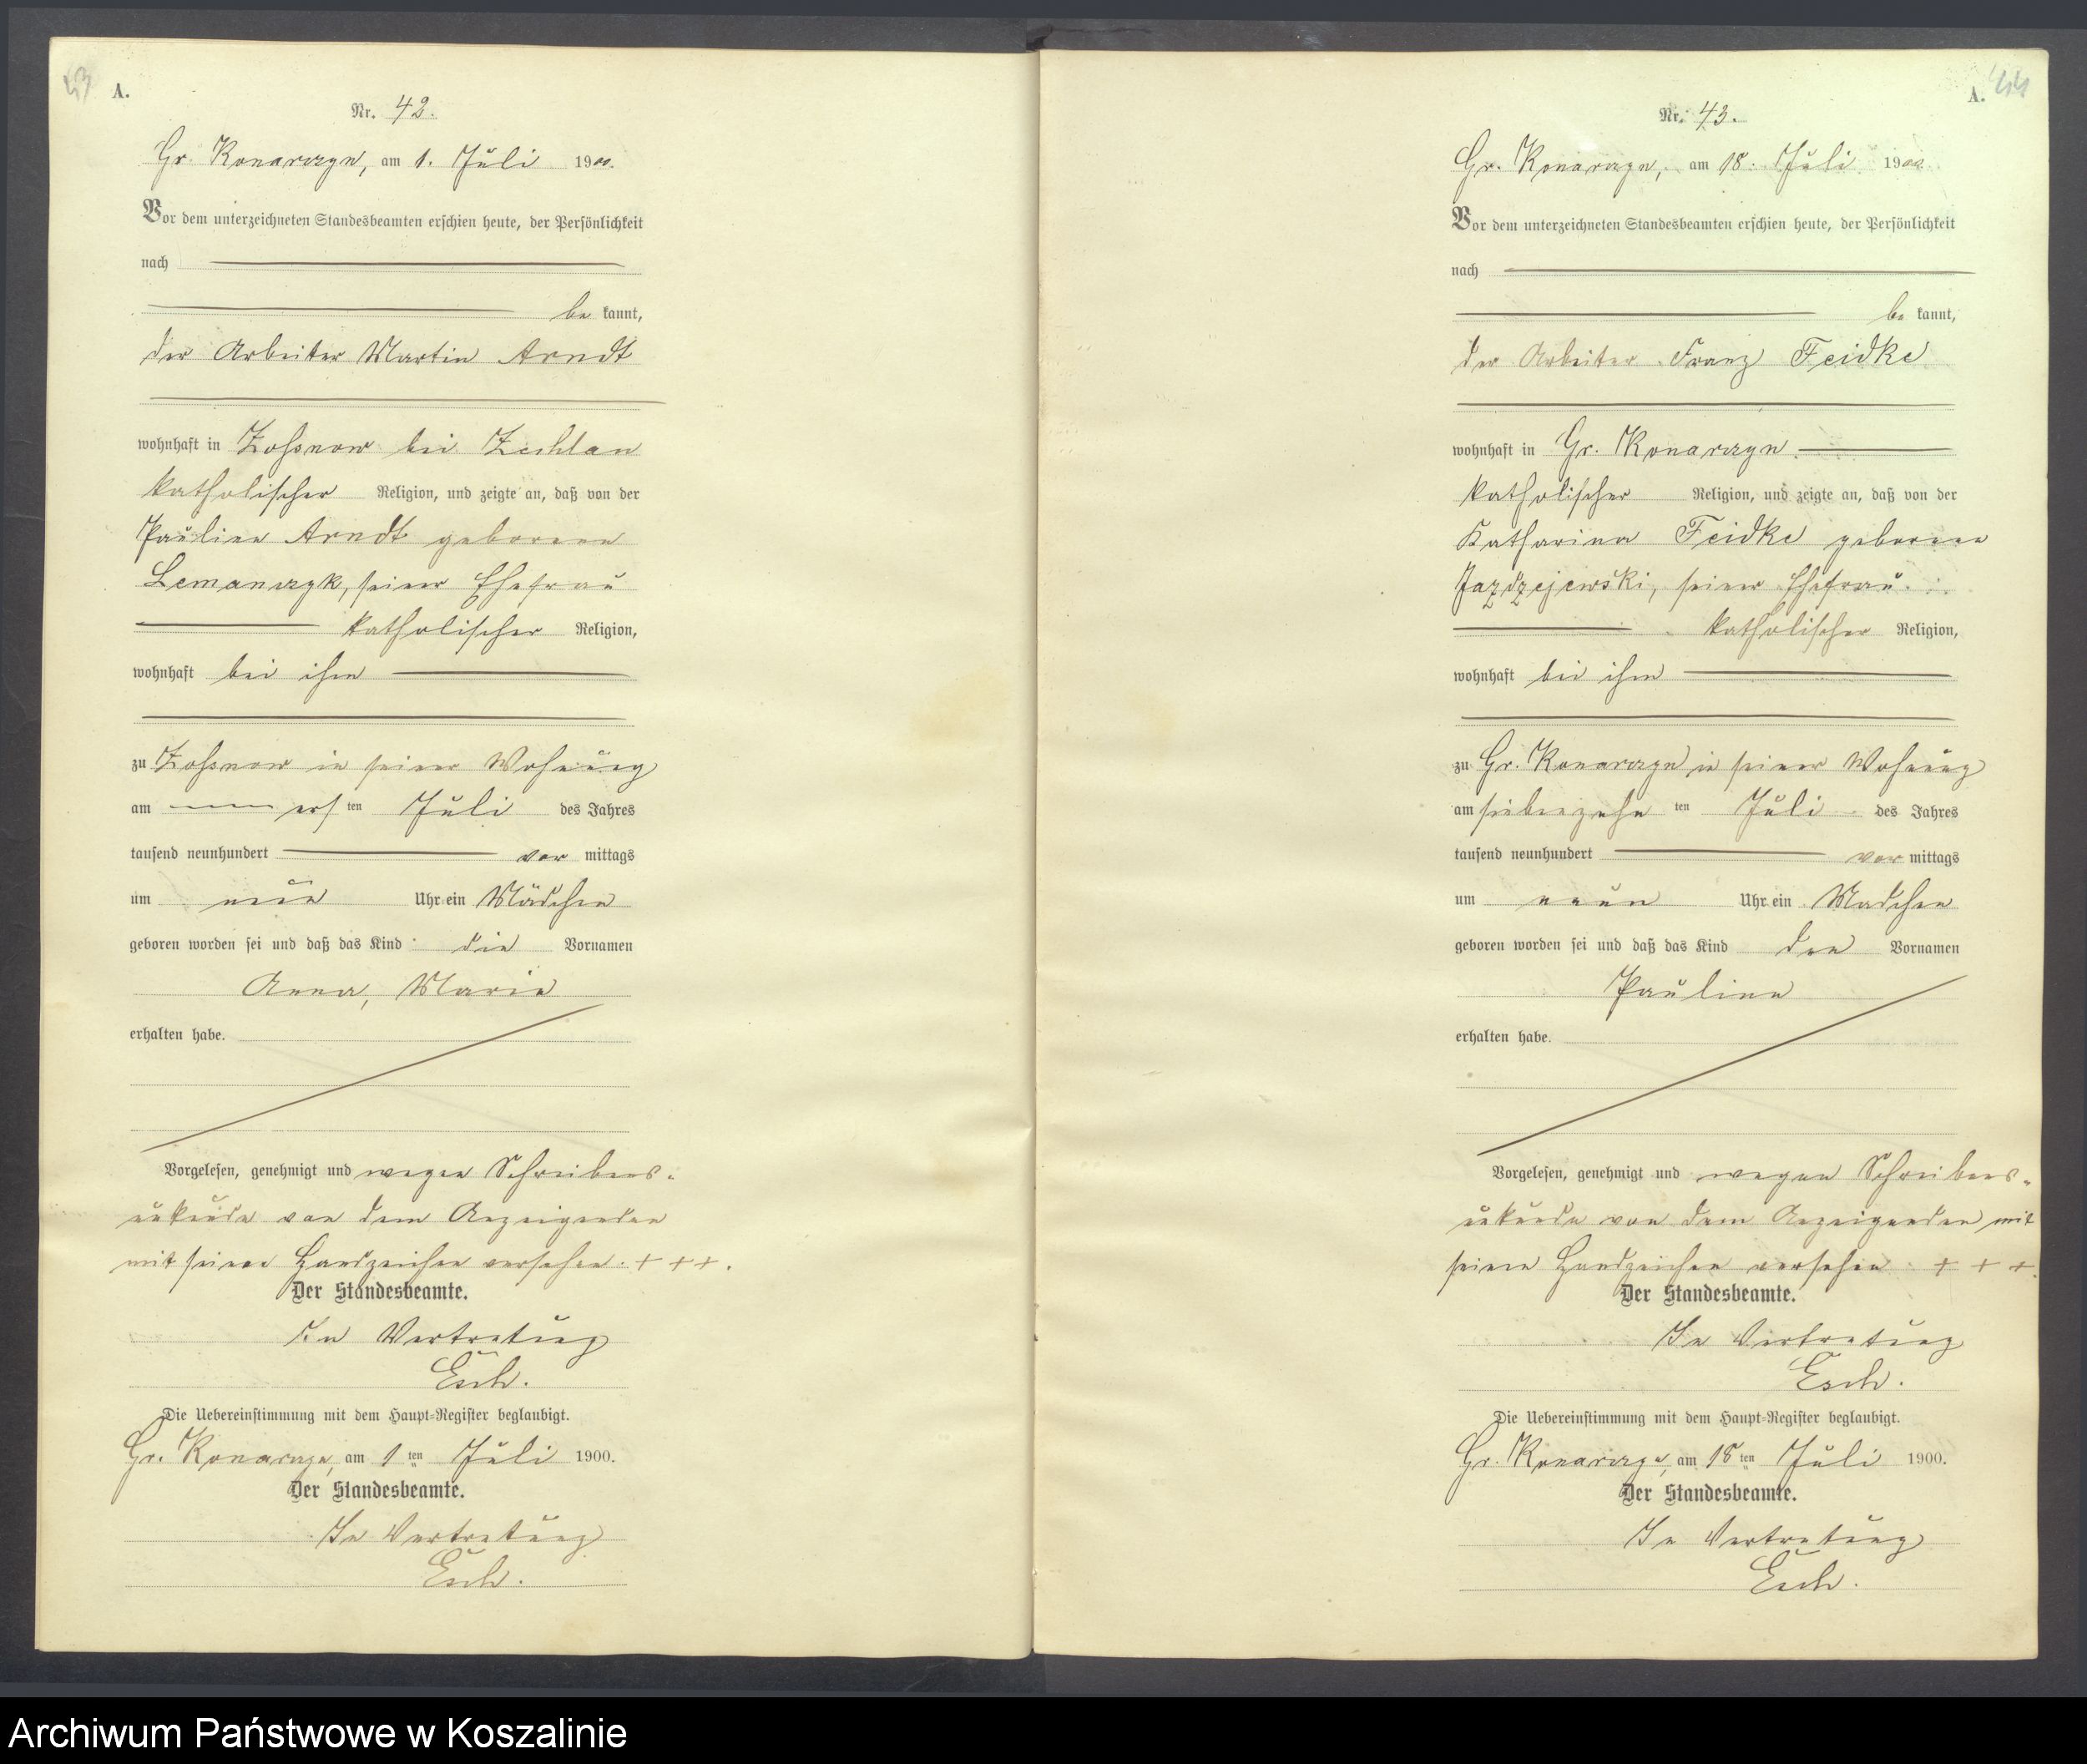 43
A.
Nr. 42.
Gr. Konarczyn, am 1. Juli 1900.
Vor dem unterzeichneten Standesbeamten erschien heute, der Persönlichkeit
nach
be kannt,
der Arbeiter Martin Arndt
wohnhaft in Zossnow bei Zechlau
katholischer Religion, und zeigte an, daß von der
Pauline Arndt geborene
Lemanczyk, seiner Ehefrau
katholischer Religion,
wohnhaft bei ihm
zu Zossnow in seiner Wohnung
am ersten Juli des Jahres
tausend neunhundert vor mittags
um neun Uhr ein Mädchen
geboren worden sei und daß das Kind die Vornamen
Anna, Maria
erhalten habe.
Vorgelesen, genehmigt und wegen Schreibens-
unkunde von dem Anzeigenden
mit seinen Handzeichen versehen. + + +.
Der Standesbeamte.
In Vertretung
Esch.
Die Uebereinstimmung mit dem Haupt-Register beglaubigt.
Gr. Konarczyn, am 1ten Juli 1900.
Der Standesbeamte.
In Vertretung
Esch.
44
A.
Nr. 43.
Gr. Konarczyn, am 18. Juli 1900
Vor dem unterzeichneten Standesbeamten erschien heute, der Persönlichkeit
nach
be kannt,
der Arbeiter Franz Feidke
wohnhaft in Gr. Konarczyn
katholischer Religion, und zeigte an, daß von der
Katharina Feidke geborene
Jazdzejewski, seiner Ehefrau
katholischer Religion,
wohnhaft bei ihm
zu Gr. Konarczyn in seiner Wohnung
am siebenzehnten Juli des Jahres
tausend neunhundert vor mittags
um neun Uhr ein Mädchen
geboren worden sei und daß das Kind den Vornamen
Pauline
erhalten habe.
Vorgelesen, genehmigt und wegen Schreibens-
unkunde von dem Anzeigenden mit
seinen Handzeichen versehen. + + +.
Der Standesbeamte.
In Vertretung
Esch.
Die Uebereinstimmung mit dem Haupt-Register beglaubigt.
Gr. Konarczyn, am 18ten Juli 1900.
Der Standesbeamte.
In Vertretung
Esch.
Archiwum Państwowe w Koszalinie